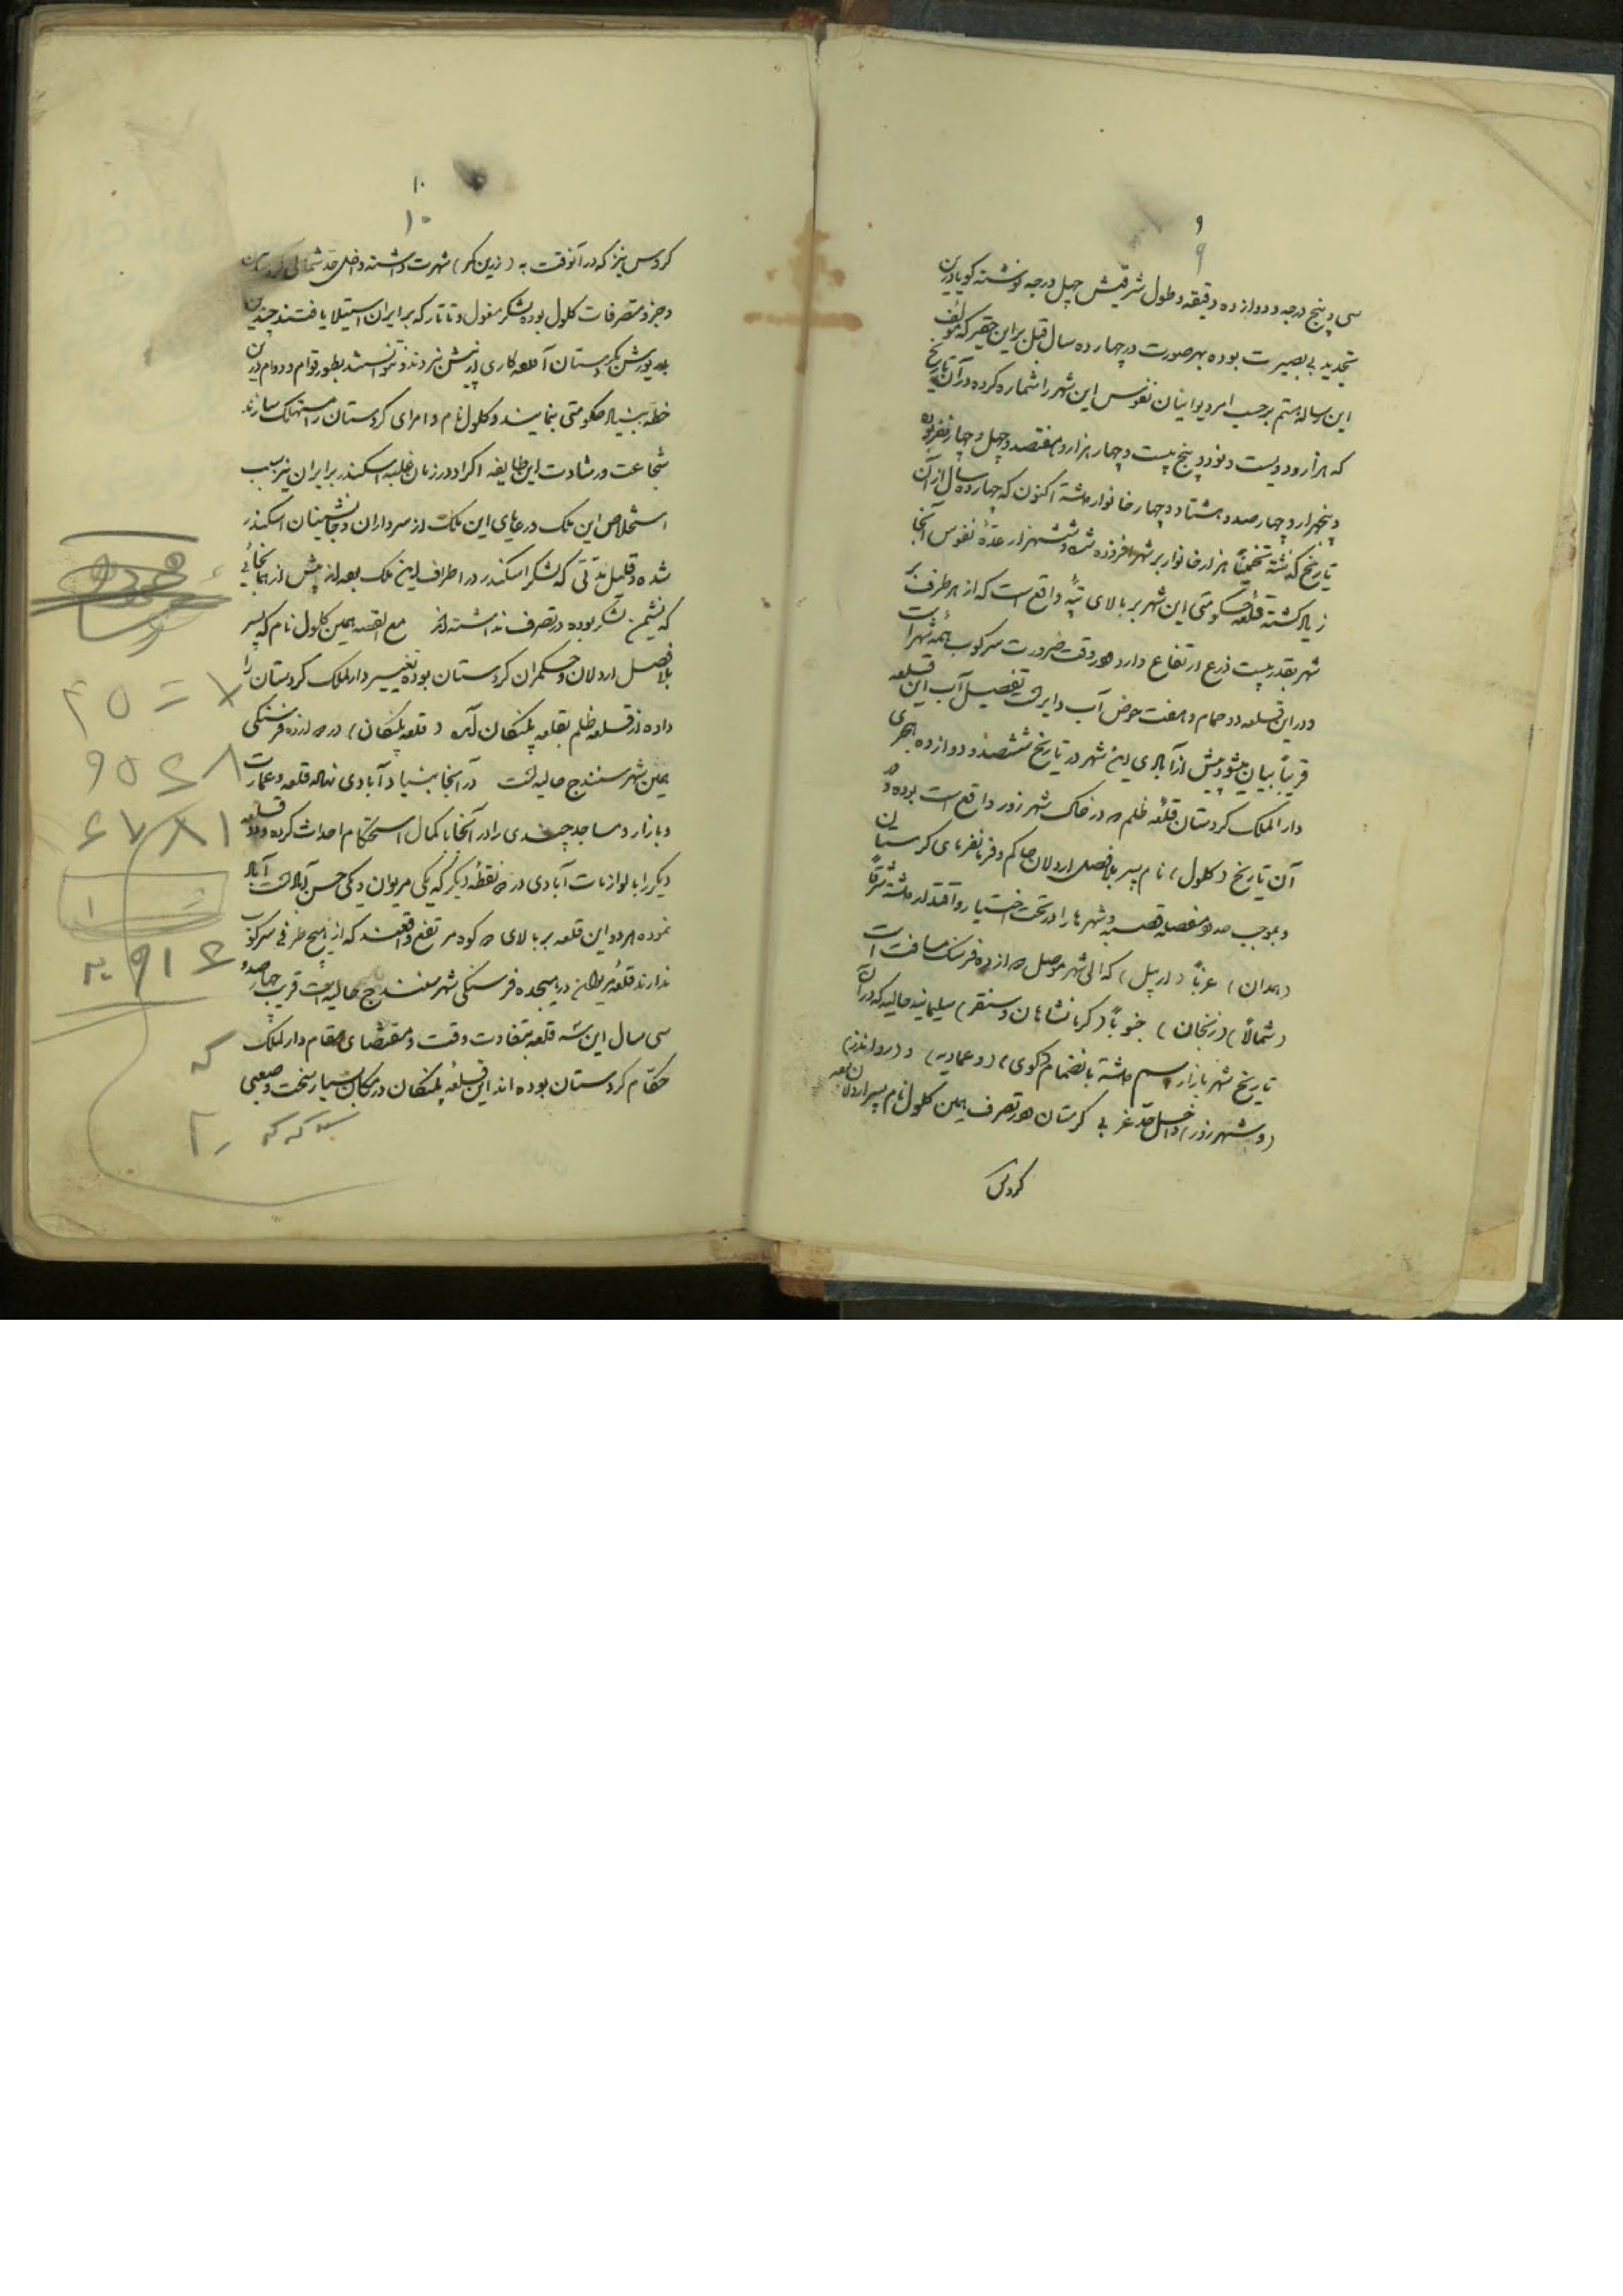 ۹
۹
سی و پنج درجه و دوازده دقیقه و طول شرقیش چهل درجه نوشته گویا درین
تجدید بی بصیرت بوده بهر صورت در چهارده سال قبل براین حقیر که مؤلف
این رساله هستم برحسب امر دیوانیان نفوس این شهر را شماره کرده در آن تاریخ
که هزار و دویست و نود و پنج بیست و چهار هزار و هفتصد و چهل و چهار نفر بوده
و پنجهزار و چهار صد و هشتاد و چهار خانوار داشته اکنون که چهارده سال از آن
تاریخ گذشته تخمیناً هزار خانوار بر شهر افزوده شده و ششهزار عدهٔ نفوس آنجا
زیاد گشته قلعه حکومتی این شهر بر بالای تپهٔ واقع است که از هر طرف بر
شهر بقدر بیست ذرع ارتفاع دارد و در وقت ضرورت سرکوب همهٔ شهر است
و در این قلعه دو حمام و هفت حوض آب دایر تفصیل آب این قلعه
قریباً بیان میشود پیش از آبادی این شهر در تاریخ ششصد و دوازده هجری
دارالملک کردستان قلعهٔ ظلم در خاک شهرزور واقع است بوده در
آن تاریخ (کلول) نام پسر بلافصل اردلان حاکم و فرمانفرمای کردستان
و بموجب مفصله قصبه و شهرها را در تحت اختیار و اقتدار داشته شرقاً
(همدان) غرباً (اربیل) که الی شهر موصل دوازده فرسنگ مسافت است
(شمالاً) (زنجان) جنوباً (کرمانشاهان و سنقر) سلیمانیه حالیه که در آن
تاریخ شهر بازار اسم داشته بانضمام (کوی) (و عمادیه) و (رواندز)
(و شهرزور) داخل حد غربی کردستان و در تصرف همین کلول نام پسر اردلان بوده
گروس
۱۰
۱۰
گروس نیز که در آنوقت به (زرین کمر) شهرت داشته داخل حد شمالی کردستان
و جزو متصرفات کلول بوده لشکر مغول و تاتار که بر ایران استیلا یافتند چندین
بار یورش بکردستان آورده کاری از پیش نبردند و نتوانستند بطور قوام و دوام درین
خطه بنیاد حکومتی بنمایند و کلول نام و امرای کردستان را مستهلک سازند
شجاعت و رشادت این طایفه اکراد در زمان غلبه اسکندر بر ایران نیز سبب
استخلاص این ملک و رعایای این ملک از سرداران و جانشینان اسکندر
شده و قلیل مدتی که لشکر اسکندر در اطراف این ملک بوده
که نشیمن لشکر بوده در تصرف نداشته‌اند مع القصه همین کلول نام که پسر
بلافصل اردلان و حکمران کردستان بوده تغییر دارالملک کردستان را
داده از قلعه ظلم بقلعه پلنگان آمده (قلعه پلنگان) در دوازده فرسنگی
همین شهر سنندج حالیه است در آنجا بنیاد آبادی نهاده قلعه و عمارت
و بازار و مساجد چندی را در آنجا با کمال استحکام احداث کرده و دو قلعه
دیگر را با لوازمات آبادی در دو نقطهٔ دیگر که یکی مریوان و یکی حسن آباد است آباد
نموده هر دو این قلعه بر بالای دو کوه مرتفع واقعند که از هیچ طرفی سرکوب
ندارند قلعهٔ مریوان در هیجده فرسنگی شهر سنندج حالیه است قریب چهارصد و
سی سال این سه قلعه بتفاوت وقت و مقتضای مقام دارالملک
حکام کردستان بوده‌اند این قلعه پلنگان در مکان بسیار سخت و صعبی